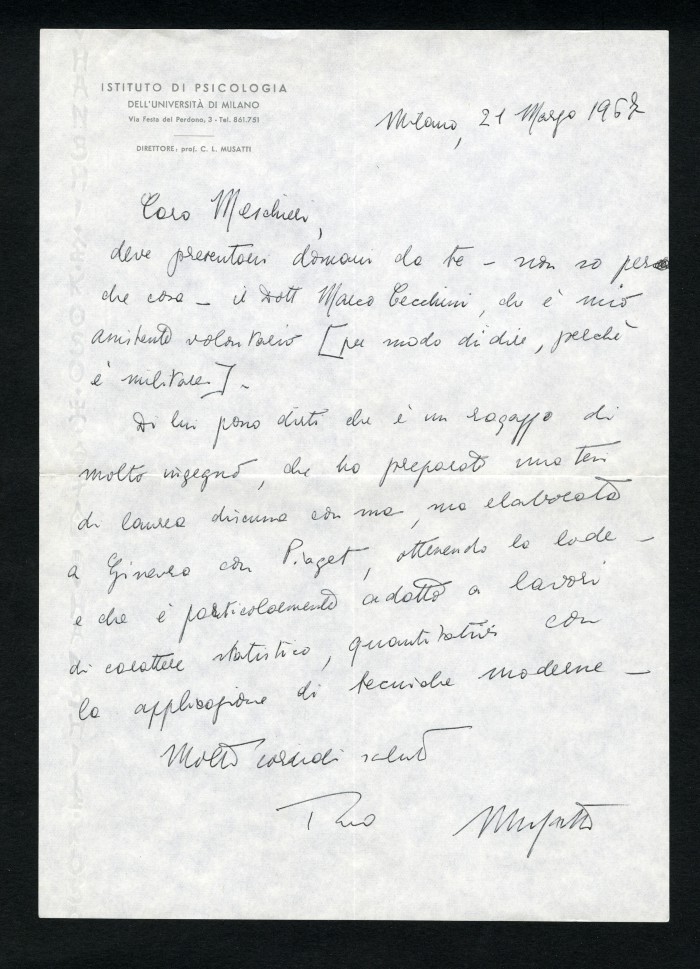 ISTITUTO DI PSICOLOGIA
DELL'UNIVERSITÀ DI MILANO
Via Festa del Perdono, 3 - Tel. 861.751
DIRETTORE: prof. C. L. MUSATTI
Milano, 21 Marzo 1967
Caro Meschieri,
deve presentarsi domani da te – non so per
che cosa – il Dott Marco Cecchini, che è mio
assistente volontario [per modo di dire, perché
è militare]. –
Di lui posso dirti che è un ragazzo di
molto ingegno, che ha preparato una tesi
di laurea discussa con me, ma elaborata
a Ginevra con Piaget, ottenendo la lode –
e che è particolarmente adatto a lavori
di carattere statistico, quantitativi con
la applicazione di tecniche moderne –
Molti cordiali saluti
Tuo Musatti